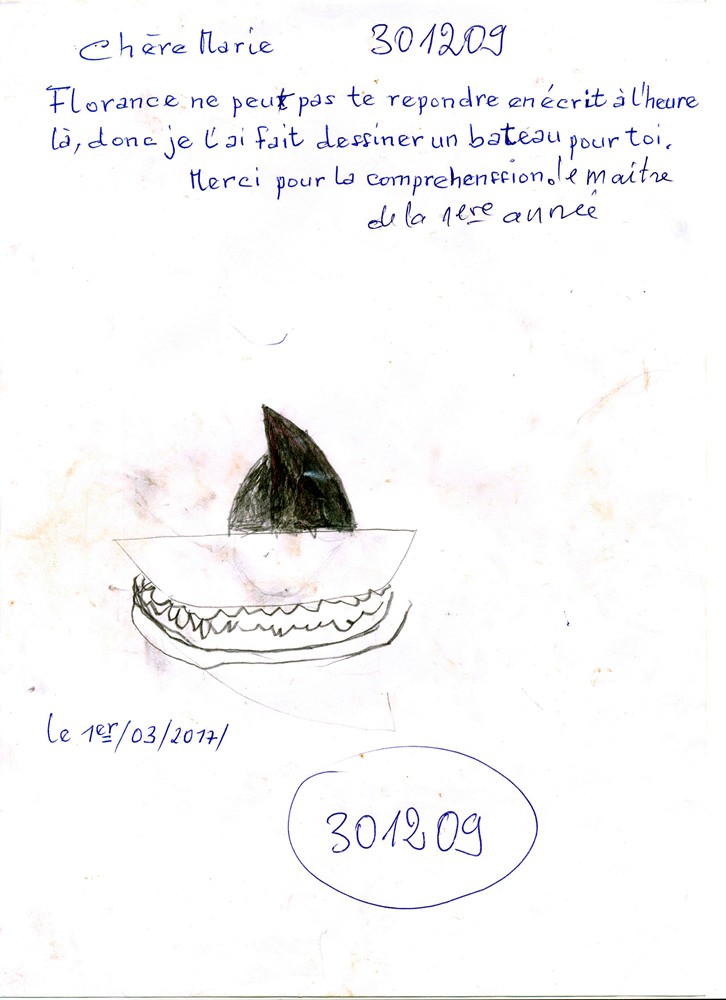 Chère Marie 301209
Florance ne peut pas te repondre en écrit à l'heure
là, donc je l'ai fait dessiner un bateau pour toi.
Merci pour la comprehenssion. le maître
de la 1ère année
le 1er/03/2017/
301209